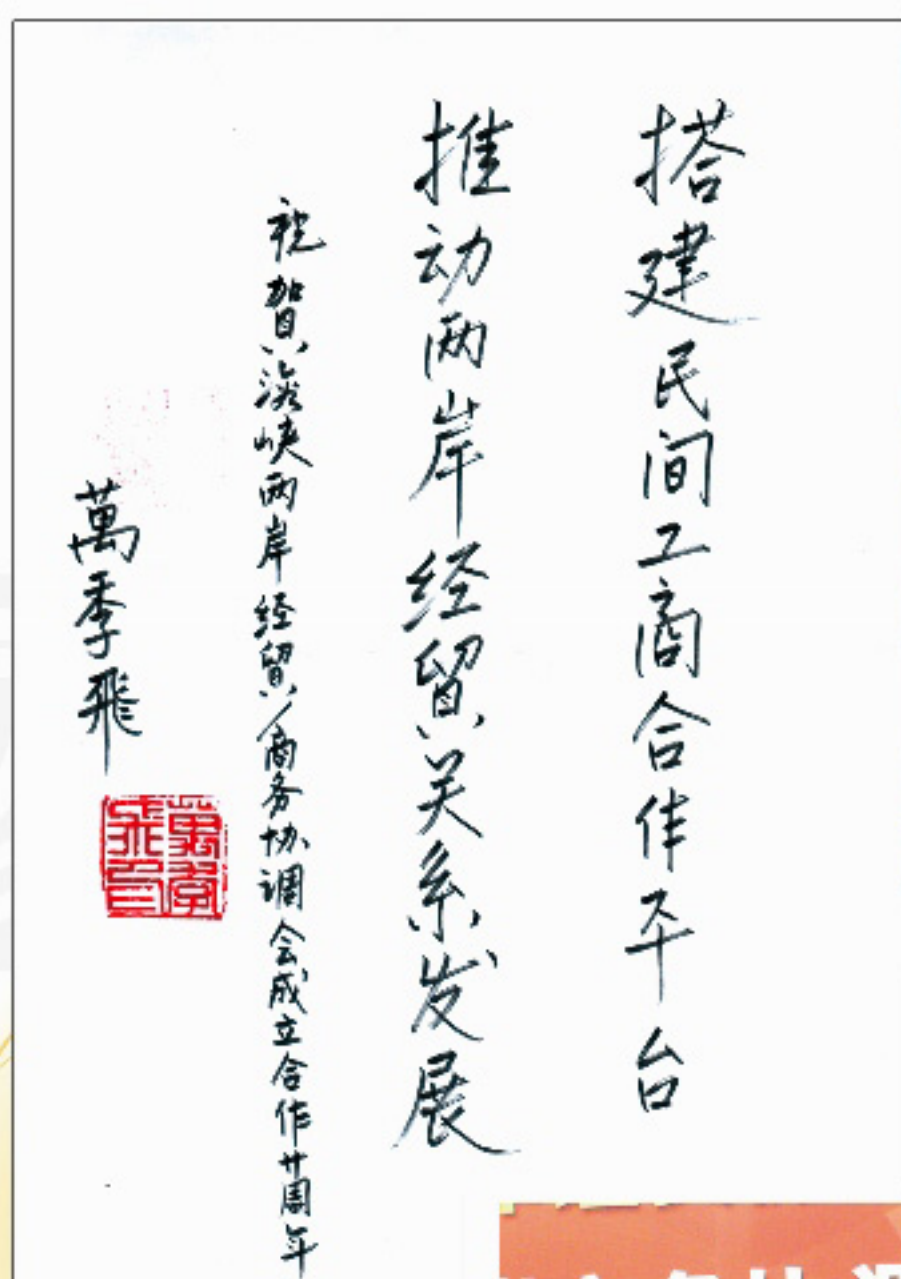 搭建民间工商合作平台
推动两岸经贸关系发展
祝贺海峡两岸经贸商务协调会成立合作廿周年
萬季飛